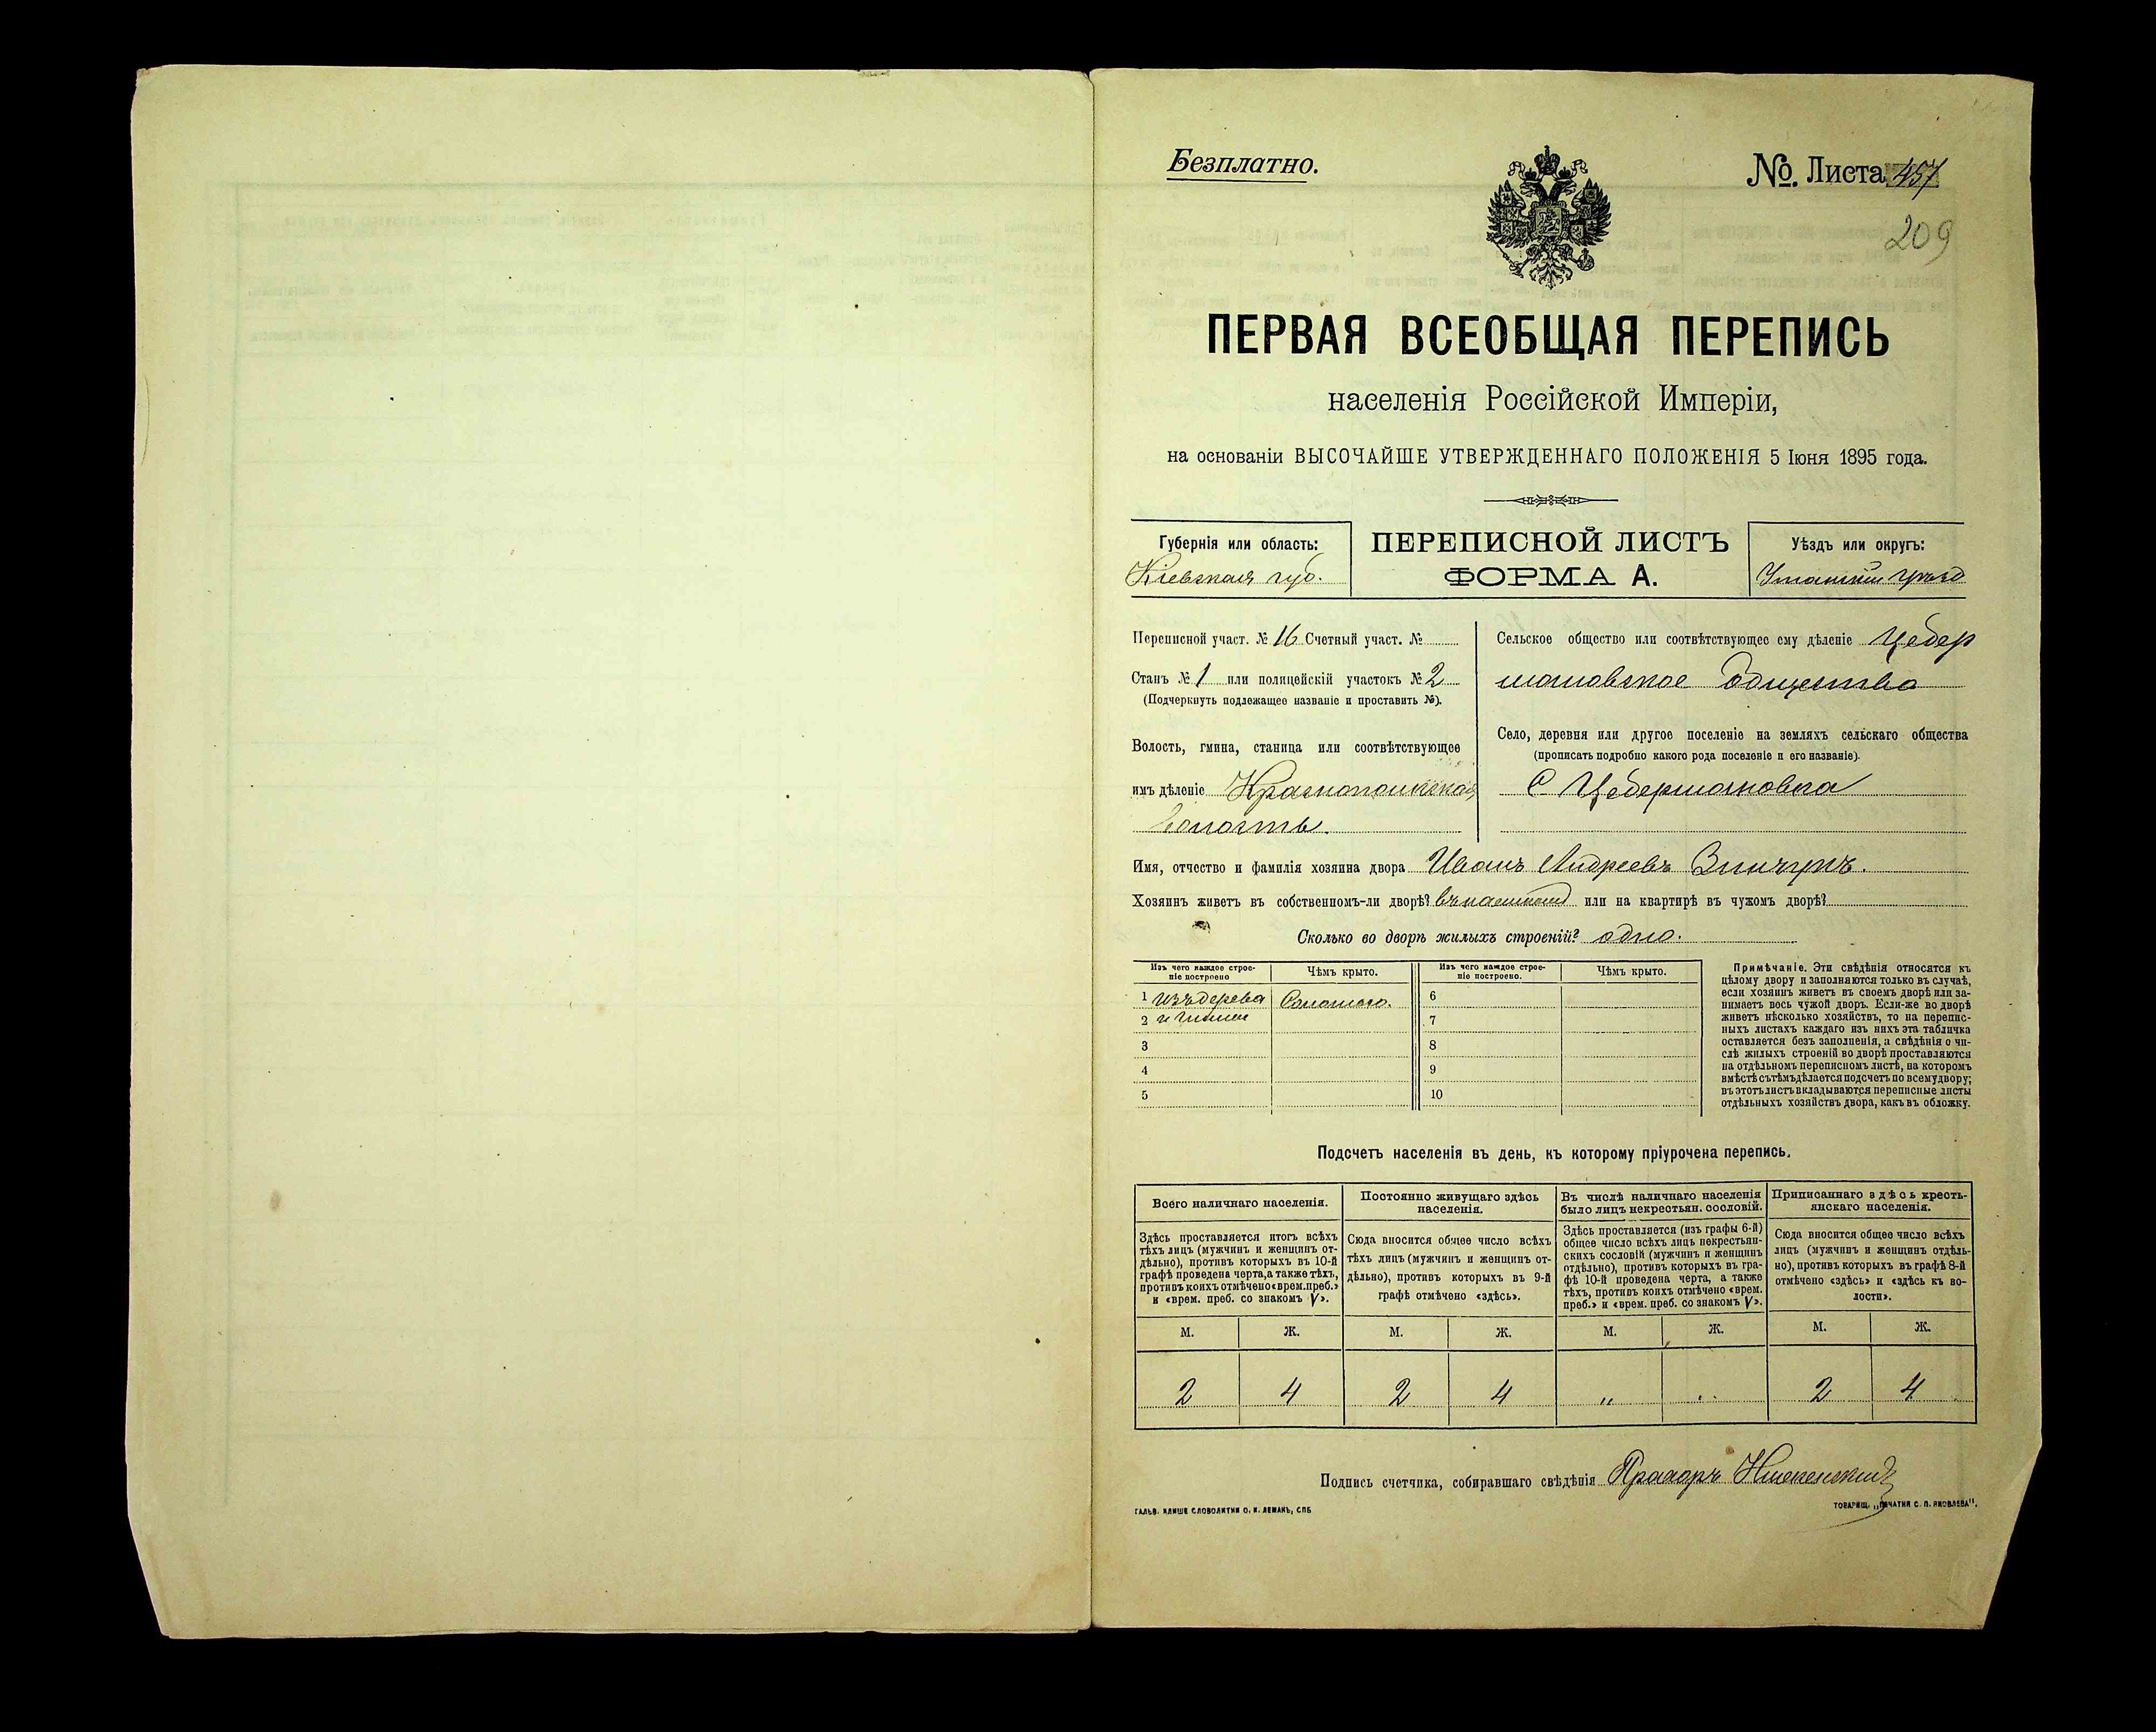 Безплатно.
№. Листа 457
209
ПЕРВАЯ ВСЕОБЩАЯ ПЕРЕПИСЬ
населенія Россійской Имперіи,
на основаніи ВЫСОЧАЙШЕ УТВЕРЖДЕННАГО ПОЛОЖЕНІЯ 5 Іюня 1895 года.
Губернія или область:
Кіевская губ.
ПЕРЕПИСНОЙ ЛИСТЪ
ФОРМА А.
Уѣздъ или округъ:
Уманскій уѣзд
Переписной участ. № 16 Счетный участ. №
Станъ № 1 или полицейскій участокъ № 2
(Подчеркнуть подлежащее названіе и проставить №).
Волость, гмина, станица или соотвѣтствующее
имъ дѣленіе Краснопольская
волость.
Сельское общество или соотвѣтствующее ему дѣленіе Цебер
мановское общества
Село, деревня или другое поселеніе на земляхъ сельскаго общества
(прописать подробно какого рода поселеніе и его названіе).
С Цебермановка
Имя, отчество и фамилія хозяина двора Иванъ Андреевъ Винчукъ.
Хозяинъ живетъ въ собственномъ-ли дворѣ? или на квартирѣ въ чужомъ дворѣ?
Сколько во дворѣ жилыхъ строеній? одно.
Изъ чего каждое строе-
ніе построено
Чѣмъ крыто.
Изъ чего каждое строе-
ніе построено.
Чѣмъ крыто.
1 изъ дерева Соломою. 6
2 и глины 7
3 8
4 9
5 10
Примѣчаніе. Эти свѣдѣнія относятся къ
цѣлому двору и заполняются только въ случаѣ,
если хозяинъ живетъ въ своемъ дворѣ или за-
нимаетъ весь чужой дворъ. Если-же во дворѣ
живетъ нѣсколько хозяйствъ, то на перепис-
ныхъ листахъ каждаго изъ нихъ эта табличка
оставляется безъ заполненія, а свѣдѣнія о чи-
слѣ жилыхъ строеній во дворѣ проставляются
на отдѣльномъ переписномъ листѣ, на которомъ
вмѣстѣ съ тѣмъ дѣлается подсчетъ по всему двору;
въ этотъ листъ вкладываются переписные листы
отдѣльныхъ хозяйствъ двора, какъ въ обложку.
Подсчетъ населенія въ день, къ которому пріурочена перепись.
Всего наличнаго населенія.
Здѣсь проставляется итогъ всѣхъ
тѣхъ лицъ (мужчинъ и женщинъ от-
дѣльно), противъ которыхъ въ 10-й
графѣ проведена черта, а также тѣхъ,
противъ коихъ отмѣчено «врем. преб.»
и «врем. преб. со знакомъ V».
Постоянно живущаго здѣсь
населенія.
Сюда вносится общее число всѣхъ
тѣхъ лицъ (мужчинъ и женщинъ от-
дѣльно), противъ которыхъ въ 9-й
графѣ отмѣчено «здѣсь».
Въ числѣ наличнаго населенія
было лицъ некрестьян. сословій.
Здѣсь проставляется (изъ графы 6-й)
общее число всѣхъ лицъ некрестьян-
скихъ сословій (мужчинъ и женщинъ
отдѣльно), противъ которыхъ въ гра-
фѣ 10-й проведена черта, а также
тѣхъ, противъ коихъ отмѣчено «врем.
преб.» и «врем. преб. со знакомъ V».
Приписаннаго здѣсь кресть-
янскаго населенія.
Сюда вносится общее число всѣхъ
лицъ (мужчинъ и женщинъ отдѣль-
но), противъ которыхъ въ графѣ 8-й
отмѣчено «здѣсь» и «здѣсь къ во-
лости».
М. Ж. М. Ж. М. Ж. М. Ж.
2 4 2 4 „ „ 2 4
Подпись счетчика, собиравшаго свѣдѣнія
ГАЛЬВ. КЛИШЕ СЛОВОЛИТНИ О. И. ЛЕМАНЪ, СПБ
ТОВАРИЩ. „ПЕЧАТНЯ С. П. ЯКОВЛЕВА".